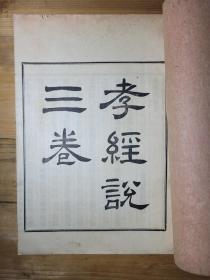 孝經說
三卷